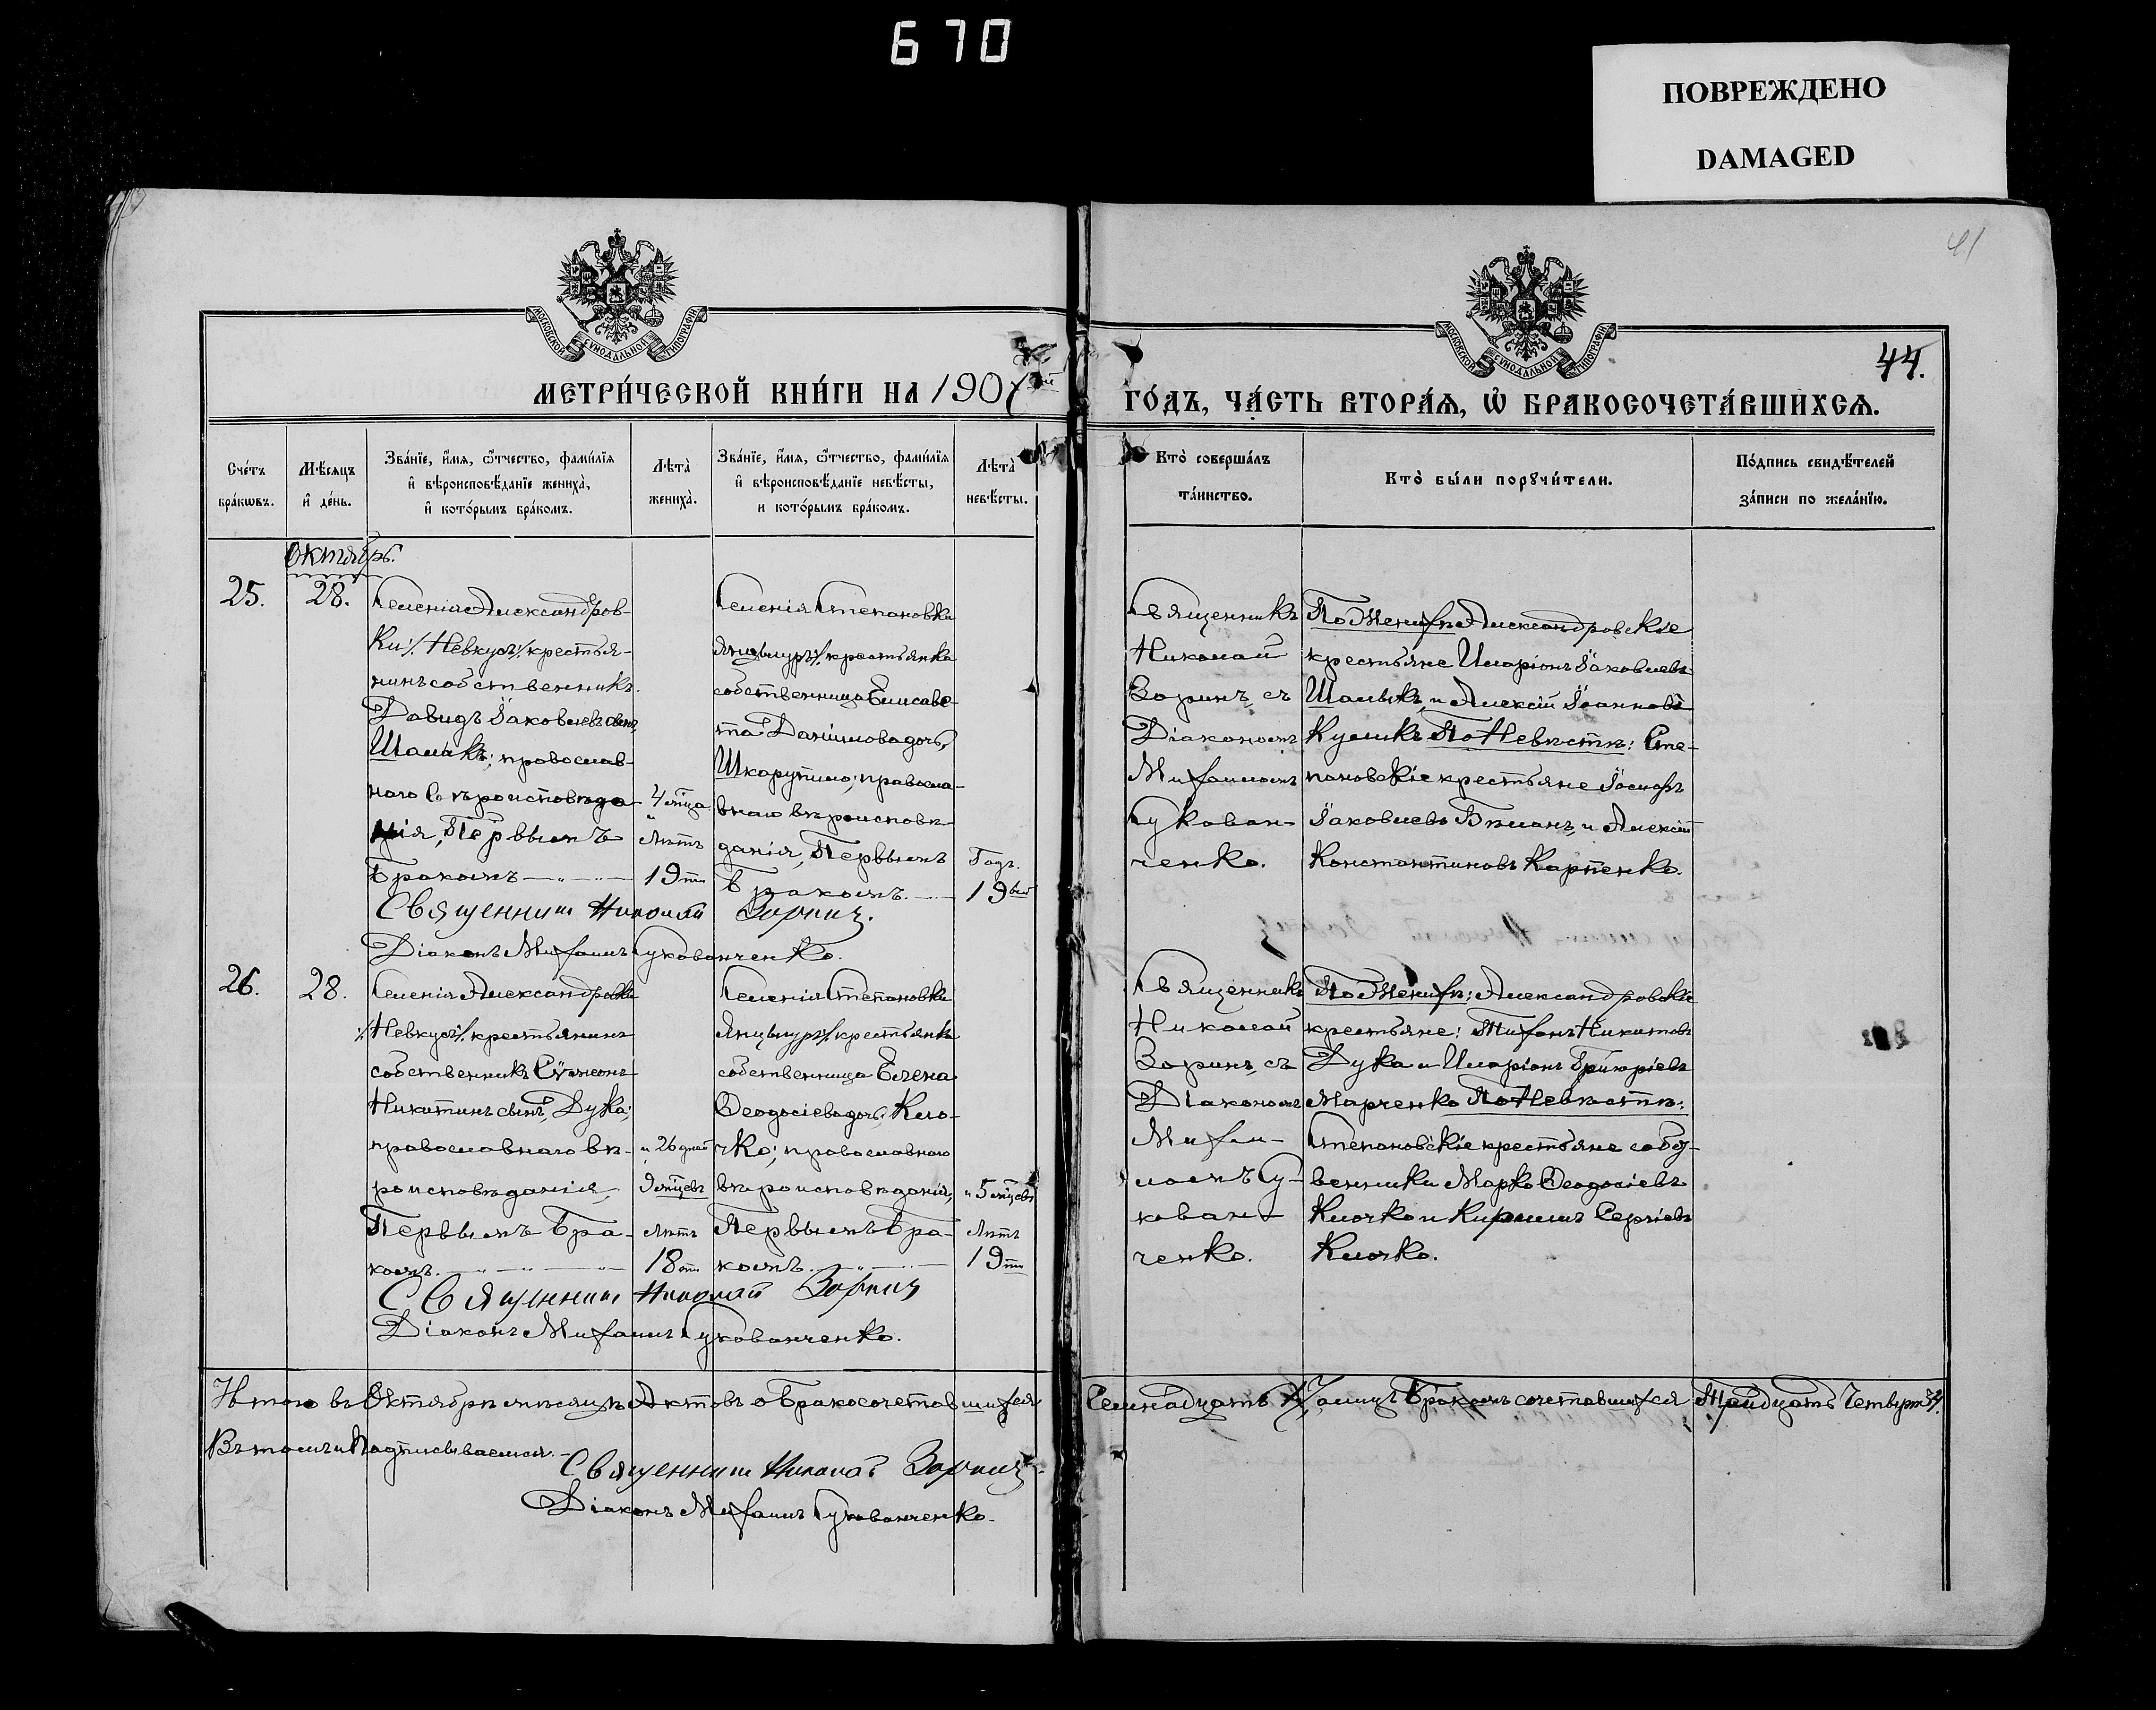 670
ПОВРЕЖДЕНО
DAMAGED
41
МОСКОВСКОЙ СѴНОДАЛЬНОЙ ТИПОГРАФІИ
МОСКОВСКОЙ СѴНОДАЛЬНОЙ ТИПОГРАФІИ
44.
МЕТРИ́ЧЕСКОЙ КНИ́ГИ НА 1907
ГО́ДЪ, ЧА́СТЬ ВТОРА́Ѧ, Ѡ БРАКОСОЧЕТА́ВШИХСѦ.
Сче́тъ бра́кѡвъ.
Мѣ́сяцъ и де́нь.
Зва́нїе, и́мя, ѻ́тчество, фами́лїя и вѣроисповѣ́данїе жениха̀, и кото́рымъ бра́комъ.
Лѣ́та̀ жениха̀.
Зва́нїе, и́мя, ѻ́тчество, фами́лїя и вѣроисповѣ́данїе невѣ́сты, и кото́рымъ бра́комъ.
Лѣ́та̀ невѣ́сты.
Кто̀ соверша́лъ та́инство.
Кто̀ бы́ли порꙋчи́тели.
По́дпись свидѣ́телей за́писи по жела́нїю.
Октябрь.
25.
28.
Селенія Александров-
ки /. Невкусъ /. крестья-
нинъ собственникъ
Давидъ Іаковлевъ сынъ,
Шалыкъ; православ-
наго вѣроисповѣда-
нія, Первымъ
бракомъ
4 мѣсяца
Лѣтъ
19ти
Селенія Степановки
Янцыцуръ /. крестьянка
собственница Елисаве-
та Даніилова дочь,
Шкарупило; правосла-
внаго вѣроисповѣ-
данія, Первымъ
бракомъ.
Годъ
19ый
Священникъ
Николай
Зоринъ, съ
Діакономъ
Михаиломъ
Сукован-
ченко.
По Женихѣ Александровскіе
крестьяне Иларіонъ Іаковлевъ
Шалыкъ, и Алексій Іоанновъ
Куликъ По Невѣстѣ: Сте-
пановскіе крестьяне Іосифъ
Іаковлевъ Вѣланъ, и Алексій
Константиновъ Карпенко.
Священникъ Николай Зоринъ.
Діаконъ Михаилъ Сукованченко.
26.
28.
Селенія Александровки
/. Невкусъ /. крестьянинъ
собственникъ Сѵмеонъ
Никитинъ сынъ, Дука;
православнаго вѣ-
роисповѣданія,
Первымъ бра-
комъ.
и 26 дней
9 мѣсяцевъ
Лѣтъ
18ти
Селенія Степановки
Янцыцуръ /. крестьянка
собственница Елена
Ѳеодосіева дочь, Клоч-
ко; православнаго
вѣроисповѣданія,
Первымъ бра-
комъ.
и 5 мѣсяцевъ
Лѣтъ
19ти
Священникъ
Николай
Зоринъ, съ
Діакономъ
Михаи-
ломъ Су-
кован-
ченко.
По Женихѣ: Александровскіе
крестьяне: Тихонъ Никитовъ
Дука и Иларіонъ Григоріевъ
Марченко По Невѣстѣ:
Степановскіе крестьяне собст-
венники Марко Ѳеодосіевъ
Клочко и Кириллъ Сергіевъ
Клочко.
Священникъ Николай Зоринъ
Діаконъ Михаилъ Сукованченко.
Итого въ Октябрѣ мѣсяцѣ Актовъ о бракосочетавшихся Семнадцать 17, а лицъ бракомъ сочетавшихся Тридцать Четыре 34.
Въ томъ и Подписываемся.
Священникъ Николай Зоринъ
Діаконъ Михаилъ Сукованченко.